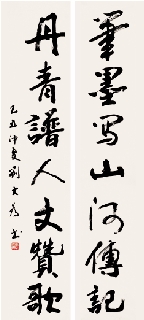 筆墨写山河傳記
丹青譜人文贊歌
乙丑仲夏劉文義書